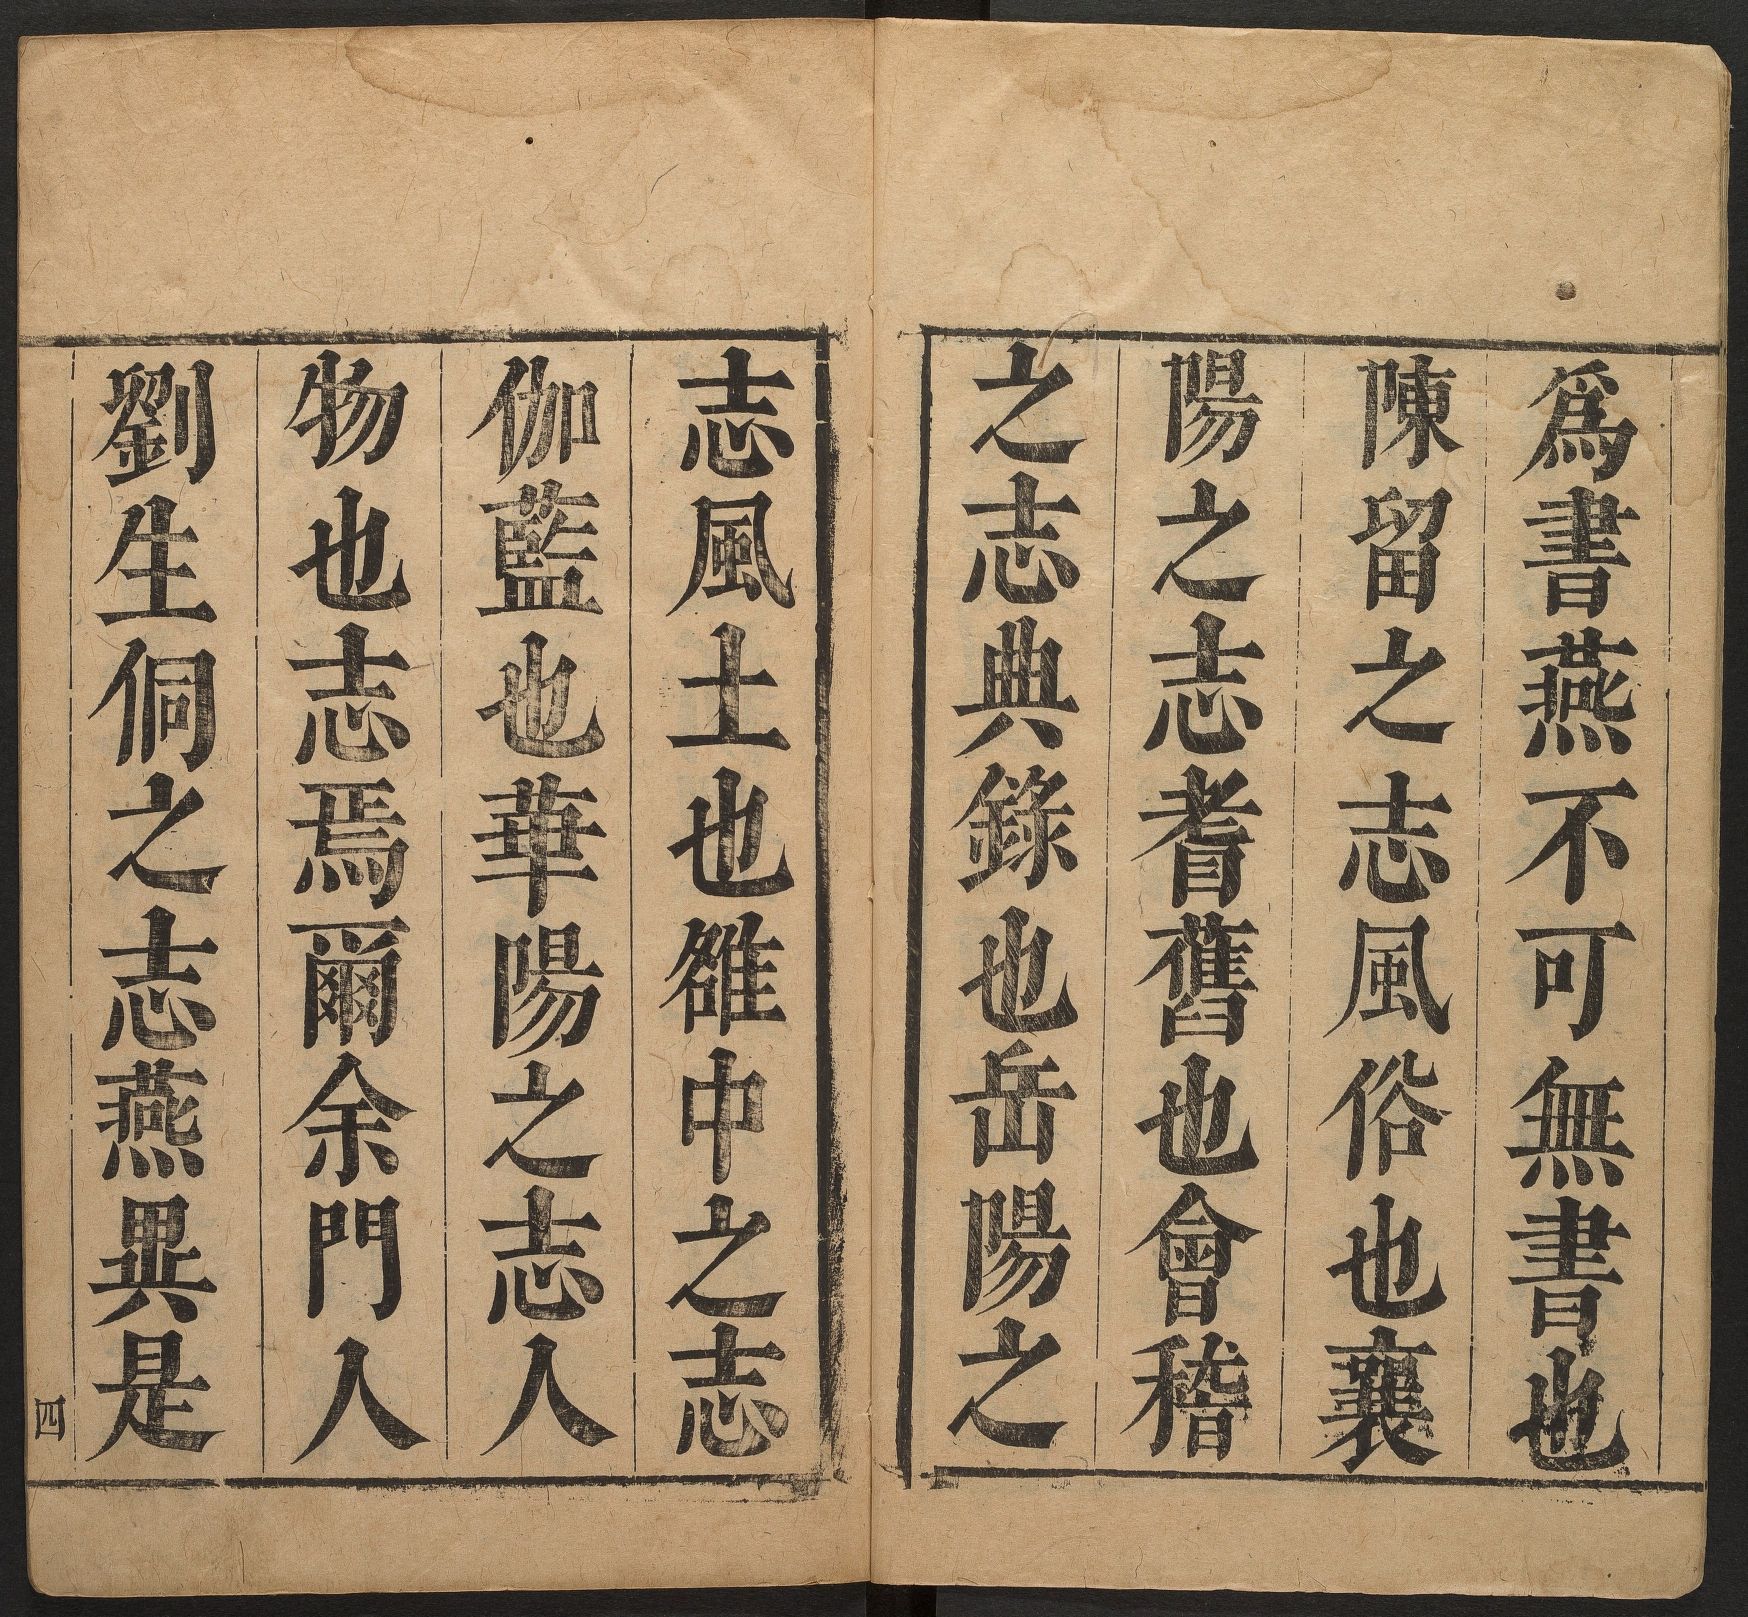 爲書燕不可無書也
陳留之志風俗也襄
陽之志耆舊也會稽
之志典錄也岳陽之
志風土也雒中之志
伽藍也華陽之志人
物也志焉爾余門人
劉生侗之志燕異是
四